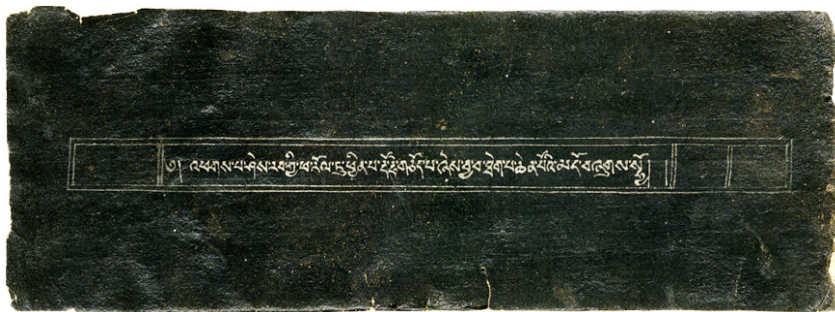 ༄། འཕགས་པ་ཤེས་རབ་ཀྱི་ཕ་རོལ་ཏུ་ཕྱིན་པ་རྡོ་རྗེ་གཅོད་པ་ཞེས་བྱ་བ་ཐེག་པ་ཆེན་པོའི་མདོ་བཞུགས་སྷོ།